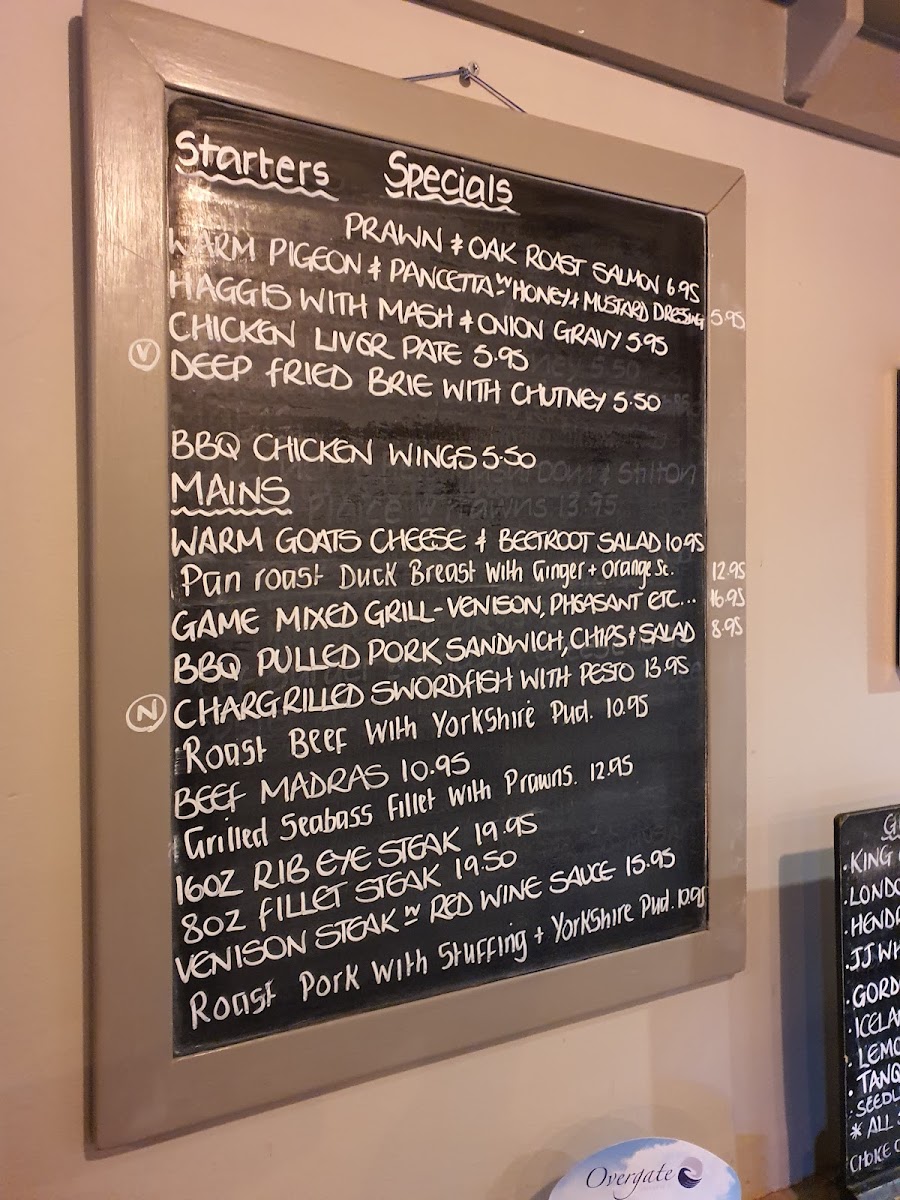 Starters Specials
PRAWN & OAK ROAST SALMON 6.95
WARM PIGEON & PANCETTA W HONEY + MUSTARD DRESSING 5.95
HAGGIS WITH MASH & ONION GRAVY 5.95
CHICKEN LIVER PATE 5.95
V DEEP FRIED BRIE WITH CHUTNEY 5.50
BBQ CHICKEN WINGS 5.50
MAINS
WARM GOATS CHEESE & BEETROOT SALAD 10.95
Pan roast Duck Breast With Ginger + Orange Sc. 12.95
GAME MIXED GRILL - VENISON, PHEASANT ETC... 16.95
BBQ PULLED PORK SANDWICH, CHIPS + SALAD 8.95
N CHARGRILLED SWORDFISH WITH PESTO 13.95
Roast Beef With Yorkshire Pud. 10.95
BEEF MADRAS 10.95
Grilled Seabass Fillet With Prawns. 12.95
16OZ RIB EYE STEAK 19.95
8OZ FILLET STEAK 19.50
VENISON STEAK W RED WINE SAUCE 15.95
Roast Pork With Stuffing + Yorkshire Pud. 10.95
KING
LONDO
HENDR
JJ WH
GORD
ICELA
LEMO
TANQ
SEEDL
* ALL
CHOICE
Overgate